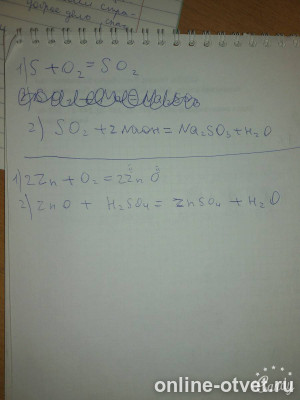 1) S + O₂ = SO₂
2) SO₂ + 2NaOH = Na₂SO₃ + H₂O
1) 2Zn + O₂ = 2ZnO
2) ZnO + H₂SO₄ = ZnSO₄ + H₂O
online-otvet.ru